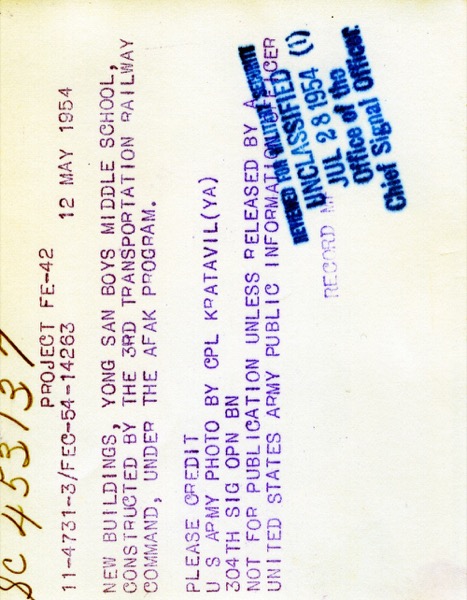 SC 453137
PROJECT FE-42
11-4731-3/FEC-54-14263 12 MAY 1954
NEW BUILDINGS, YONG SAN BOYS MIDDLE SCHOOL,
CONSTRUCTED BY THE 3RD TRANSPORTATION RAILWAY
COMMAND, UNDER THE AFAK PROGRAM.
PLEASE CREDIT
U S ARMY PHOTO BY CPL KRATAVIL(YA)
304TH SIG OPN BN
NOT FOR PUBLICATION UNLESS RELEASED BY A
UNITED STATES ARMY PUBLIC INFORMATION OFFICER
REVIEWED FOR MILITARY SECURITY
UNCLASSIFIED (1)
JUL 28 1954
Office of the
Chief Signal Officer.
RECORD